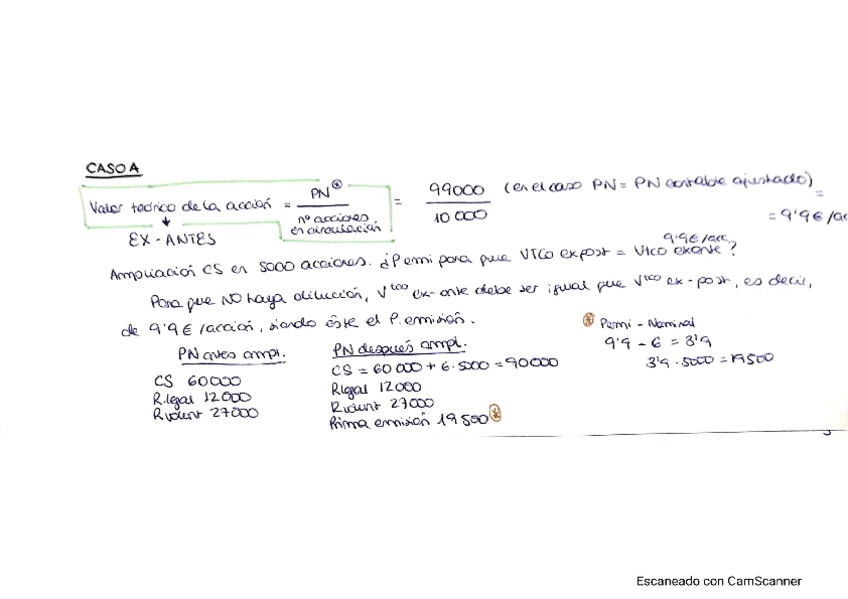 CASO A
Valor teórico de la acción = PN* / nº acciones en circulación = 99000 / 10 000 (en el caso PN = PN contable ajustado) =
= 9'9 € /ac
EX-ANTES
9'9 € /acc
Ampliación CS en 5000 acciones. ¿P emi para que VTCO expost = Vtco exante?
Para que NO haya dilución, V tco ex-ante debe ser igual que V tco ex-post, es decir,
de 9'9 € /acción, siendo éste el P. emisión.
PN antes ampl.
CS 60000
R. legal 12000
R. volunt 27000
PN después ampl.
CS = 60 000 + 6·5000 = 90000
R legal 12000
R volunt 27000
Prima emisión 19500 *
* P emi - Nominal
9'9 - 6 = 3'9
3'9 · 5000 = 19500
Escaneado con CamScanner